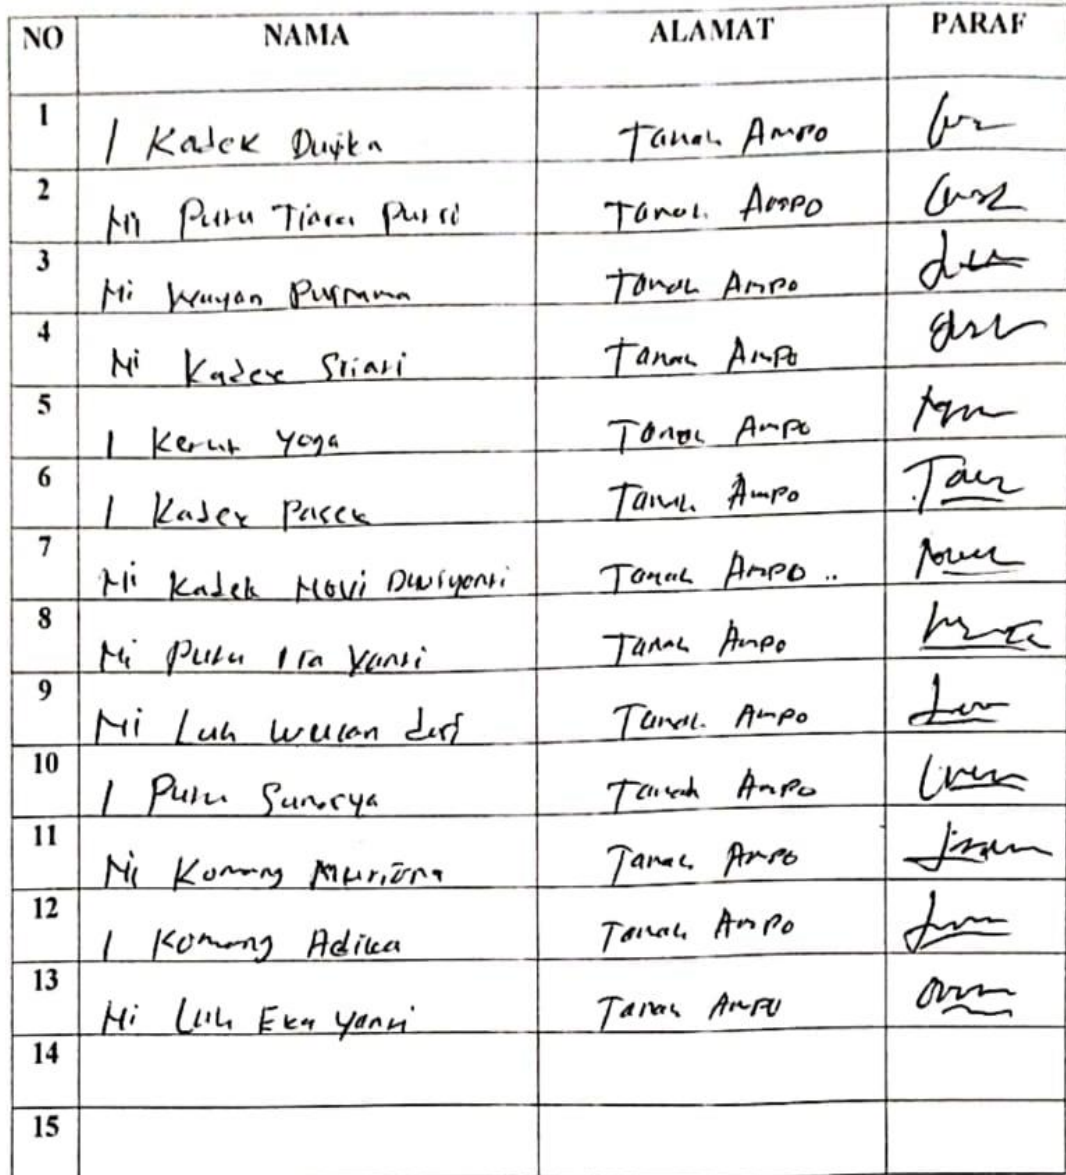 NO NAMA ALAMAT PARAF
1 I Kadek Dwika Tanah Ampo
2 Ni Putu Tiara Putri Tanah Ampo
3 Ni Wayan Purnama Tanah Ampo
4 Ni Kadek Sriasi Tanah Ampo
5 I Ketut Yoga Tanah Ampo
6 I Kadek Pasek Tanah Ampo
7 Ni Kadek Novi Dwiyanti Tanah Ampo ..
8 Ni Putu Ira Yanti Tanah Ampo
9 Ni Luh Wulan Tanah Ampo
10 I Putu Tanah Ampo
11 Ni Komang Tanah Ampo
12 I Komang Adika Tanah Ampo
13 Ni Luh Eka Yanti Tanah Ampo
14
15